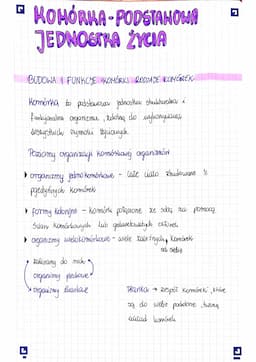 KOMÓRKA - PODSTAWOWA
JEDNOSTKA ŻYCIA
BUDOWA I FUNKCJE KOMÓRKI. RODZAJE KOMÓREK
Komórka to podstawowa jednostka strukturalna i
funkcjonalna organizmu, zdolna do wykonywania
wszystkich czynności życiowych.
Poziomy organizacji komórkowej organizmów
organizmy jednokomórkowe - całe ciało zbudowane z
pojedynczych komórek
formy kolonijne - komórki połączone ze sobą za pomocą
ścian komórkowych lub galaretowatych
organizmy wielokomórkowe - wiele zależnych komórek
od siebie
zaliczamy do nich
organizmy plechowe
organizmy tkankowe
tkanka → zespół komórek, które
są do siebie podobne, tworzą
układ komórek